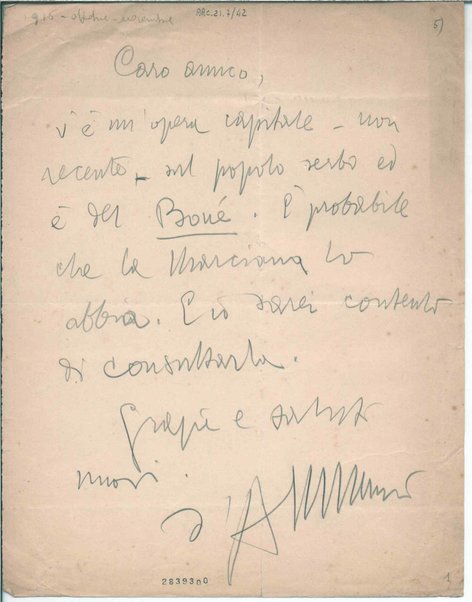 1916 - ottobre - novembre
ARC.21.7/42
5)
Caro amico,
v'è un'opera capitale - non
recente - sul popolo serbo ed
è del Boué. È probabile
che la Marciana lo
abbia. E io sarei contento
di consultarla.
Grazie e saluti
nuovi.
d'Annunzio
2839300
1